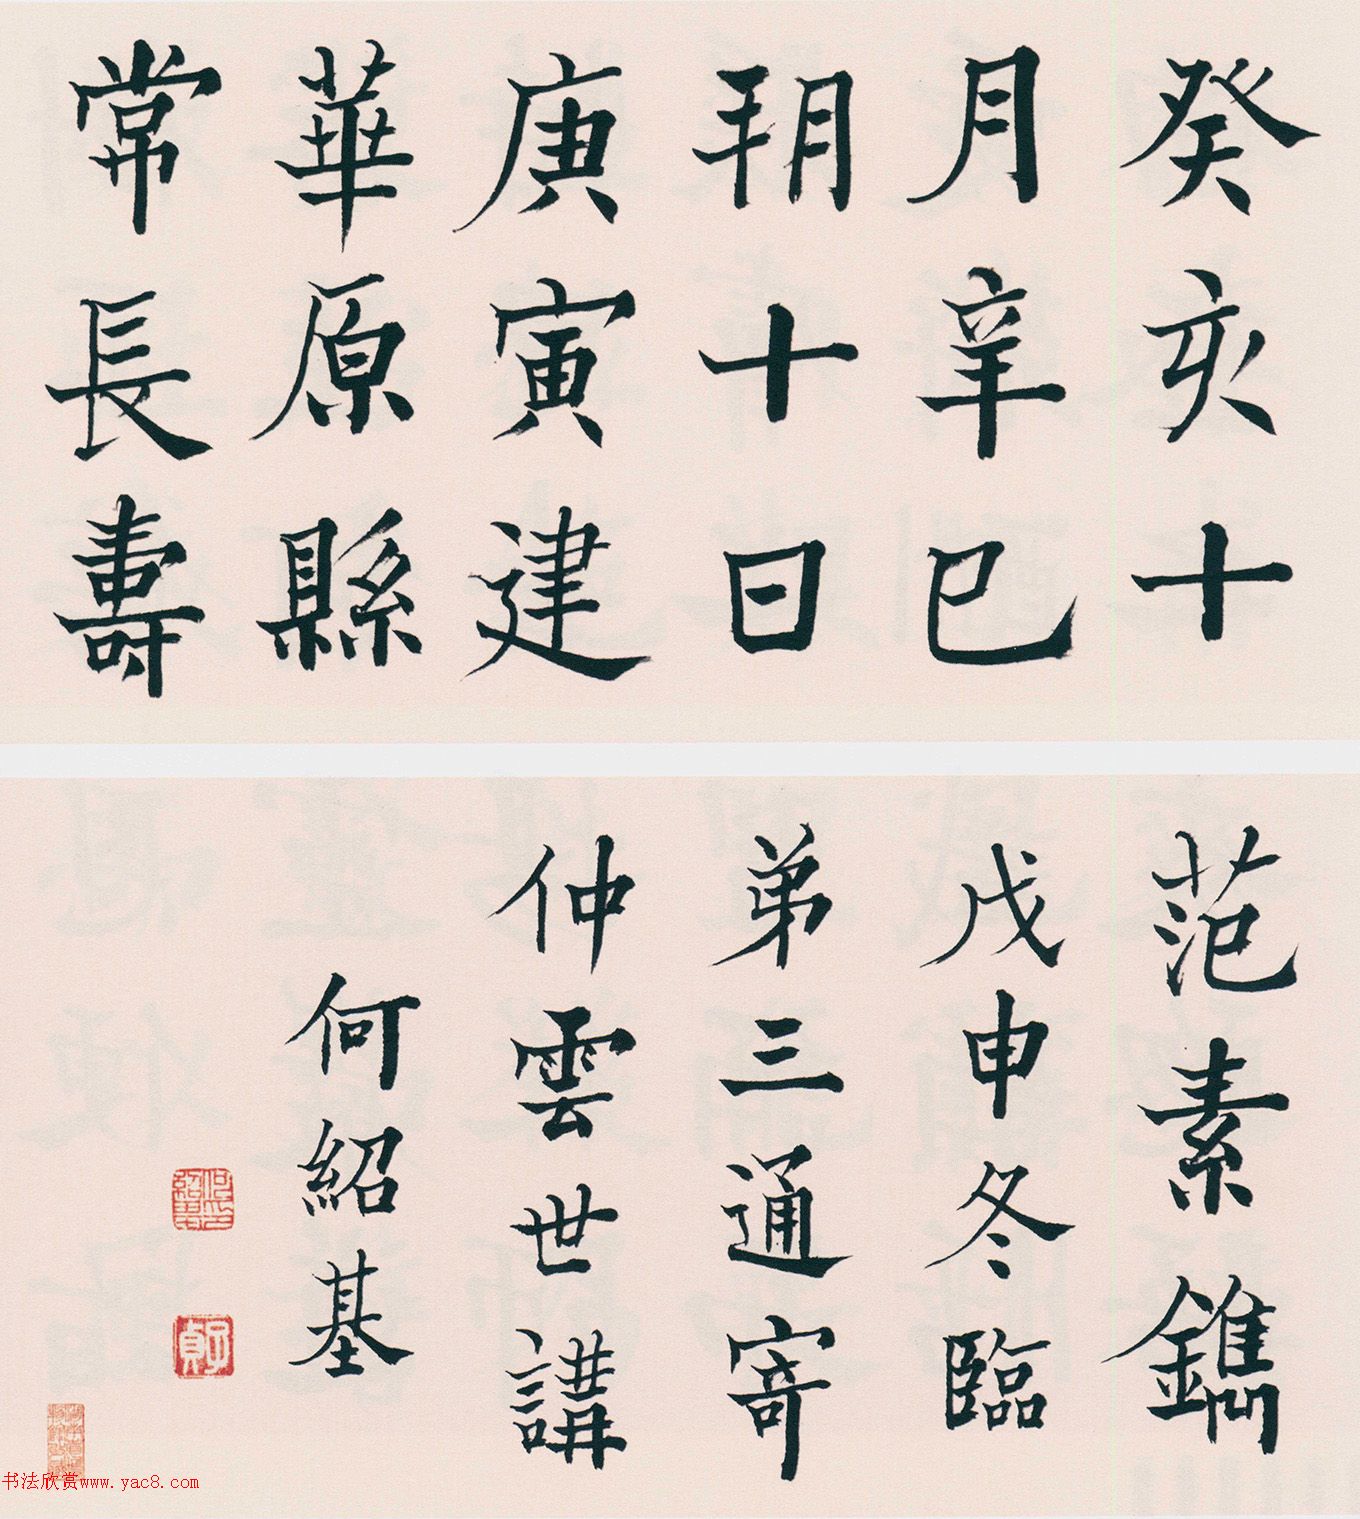 癸亥十
月辛巳
朔十日
庚寅建
華原縣
常長壽
范素鐫
戊申冬臨
弟三通寄
仲雲世講
何紹基
子貞
书法欣赏www.yac8.com